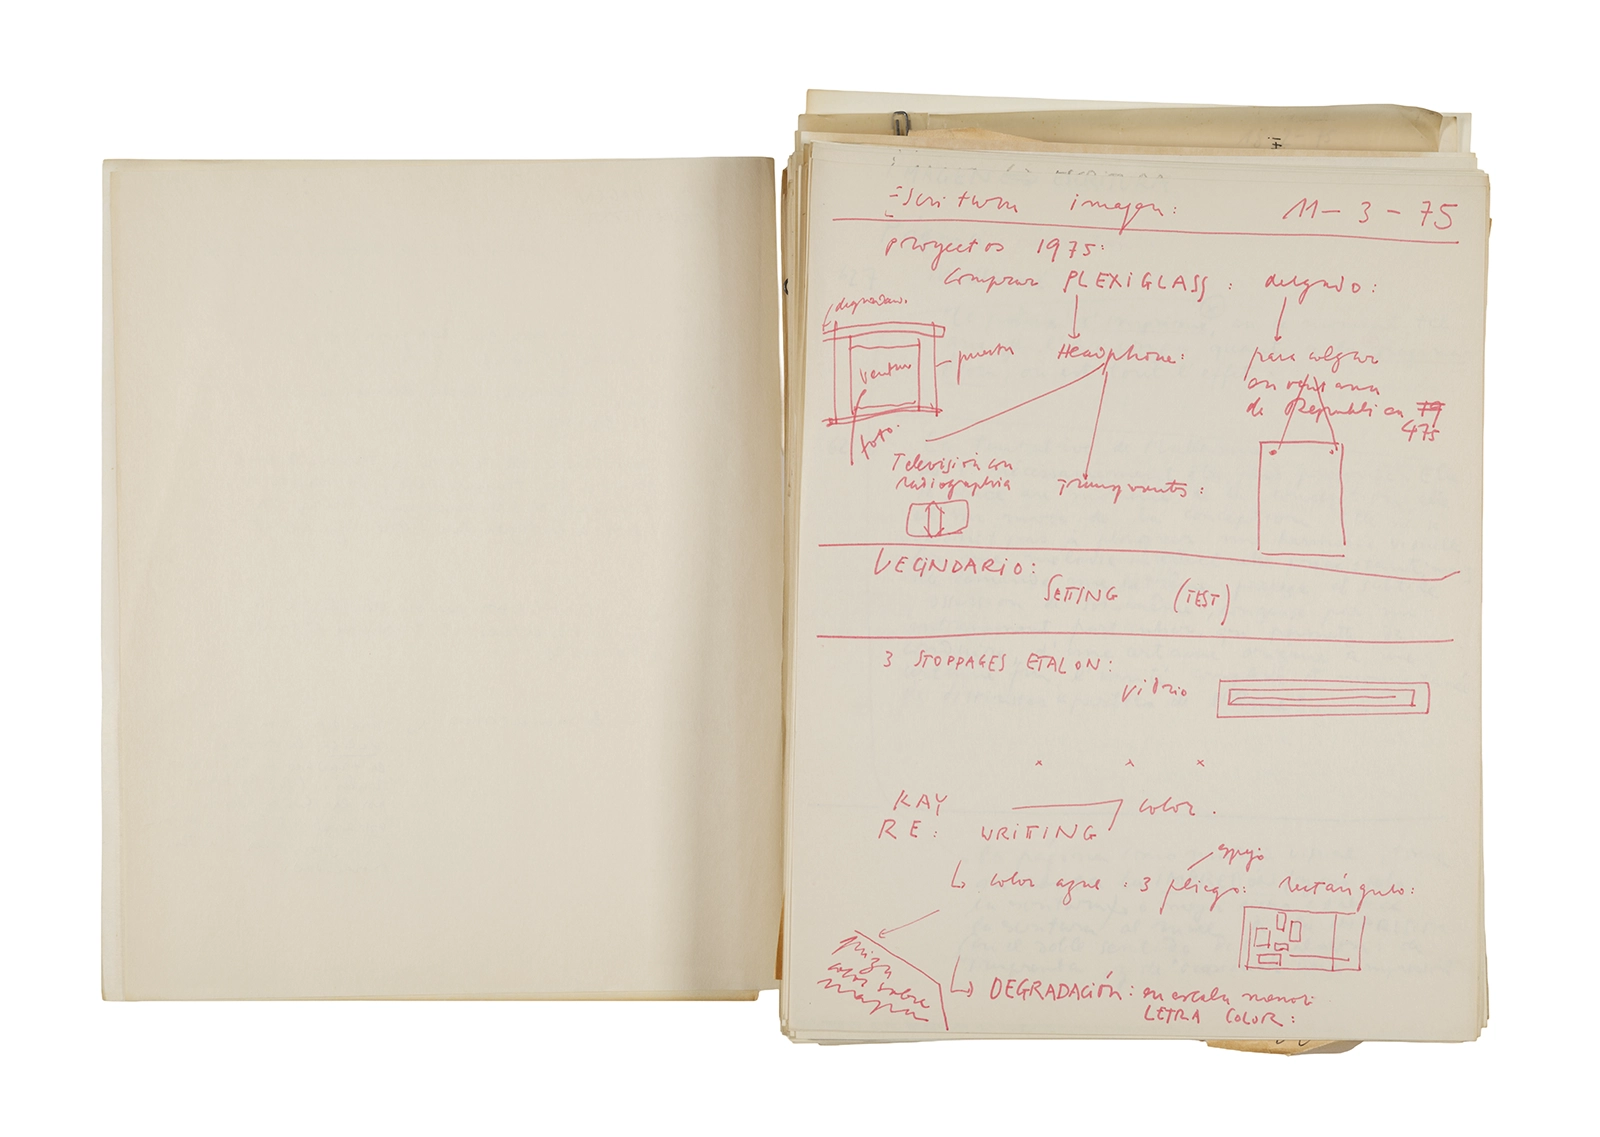 Escritura imagen: 11-3-75
proyectos 1975:
comprar PLEXIGLASS: delgado:
degradac.
Headphone: para colgar
puerta
ventana
en ventana
de República 79
475
foto.
Televisión con
radiographia
transparente:
VECINDARIO:
SETTING (TEST)
3 STOPPAGES ETALON:
vidrio
x x x
KAY color.
RE: WRITING
espejo
color azul: 3 pliego: rectángulo:
color sobre
mapa
DEGRADACIÓN: en escala menor:
LETRA COLOR: